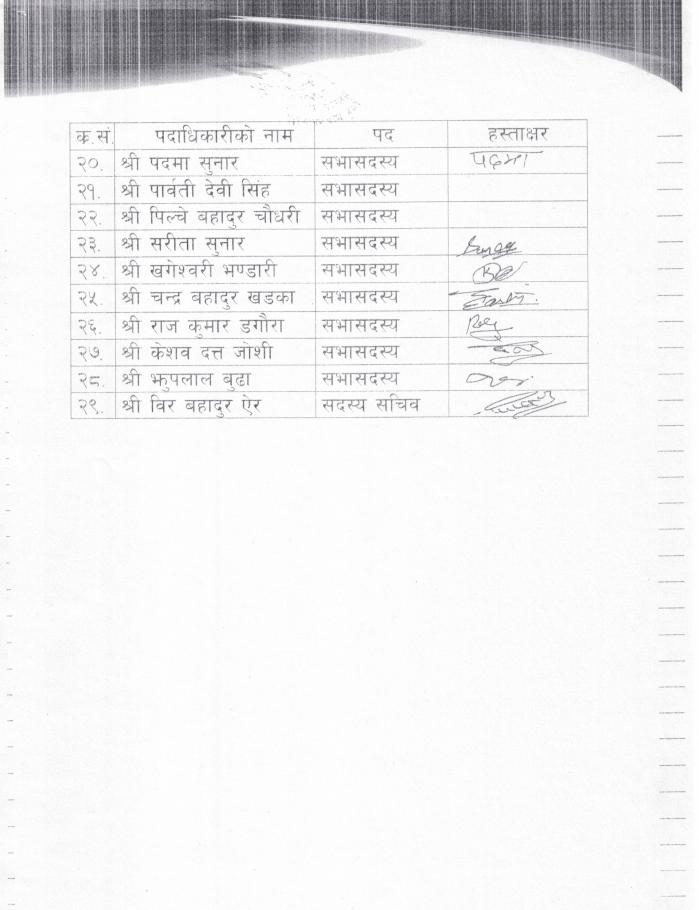 क.सं. पदाधिकारीको नाम पद हस्ताक्षर
२०. श्री पदमा सुनार सभासदस्य पदमा
२१. श्री पार्वती देवी सिंह सभासदस्य
२२. श्री पिल्चे बहादुर चौधरी सभासदस्य
२३. श्री सरीता सुनार सभासदस्य
२४. श्री खगेश्वरी भण्डारी सभासदस्य
२५. श्री चन्द्र बहादुर खडका सभासदस्य
२६. श्री राज कुमार डगौरा सभासदस्य
२७. श्री केशव दत्त जोशी सभासदस्य
२८. श्री झुपलाल बुढा सभासदस्य
२९. श्री विर बहादुर ऐर सदस्य सचिव